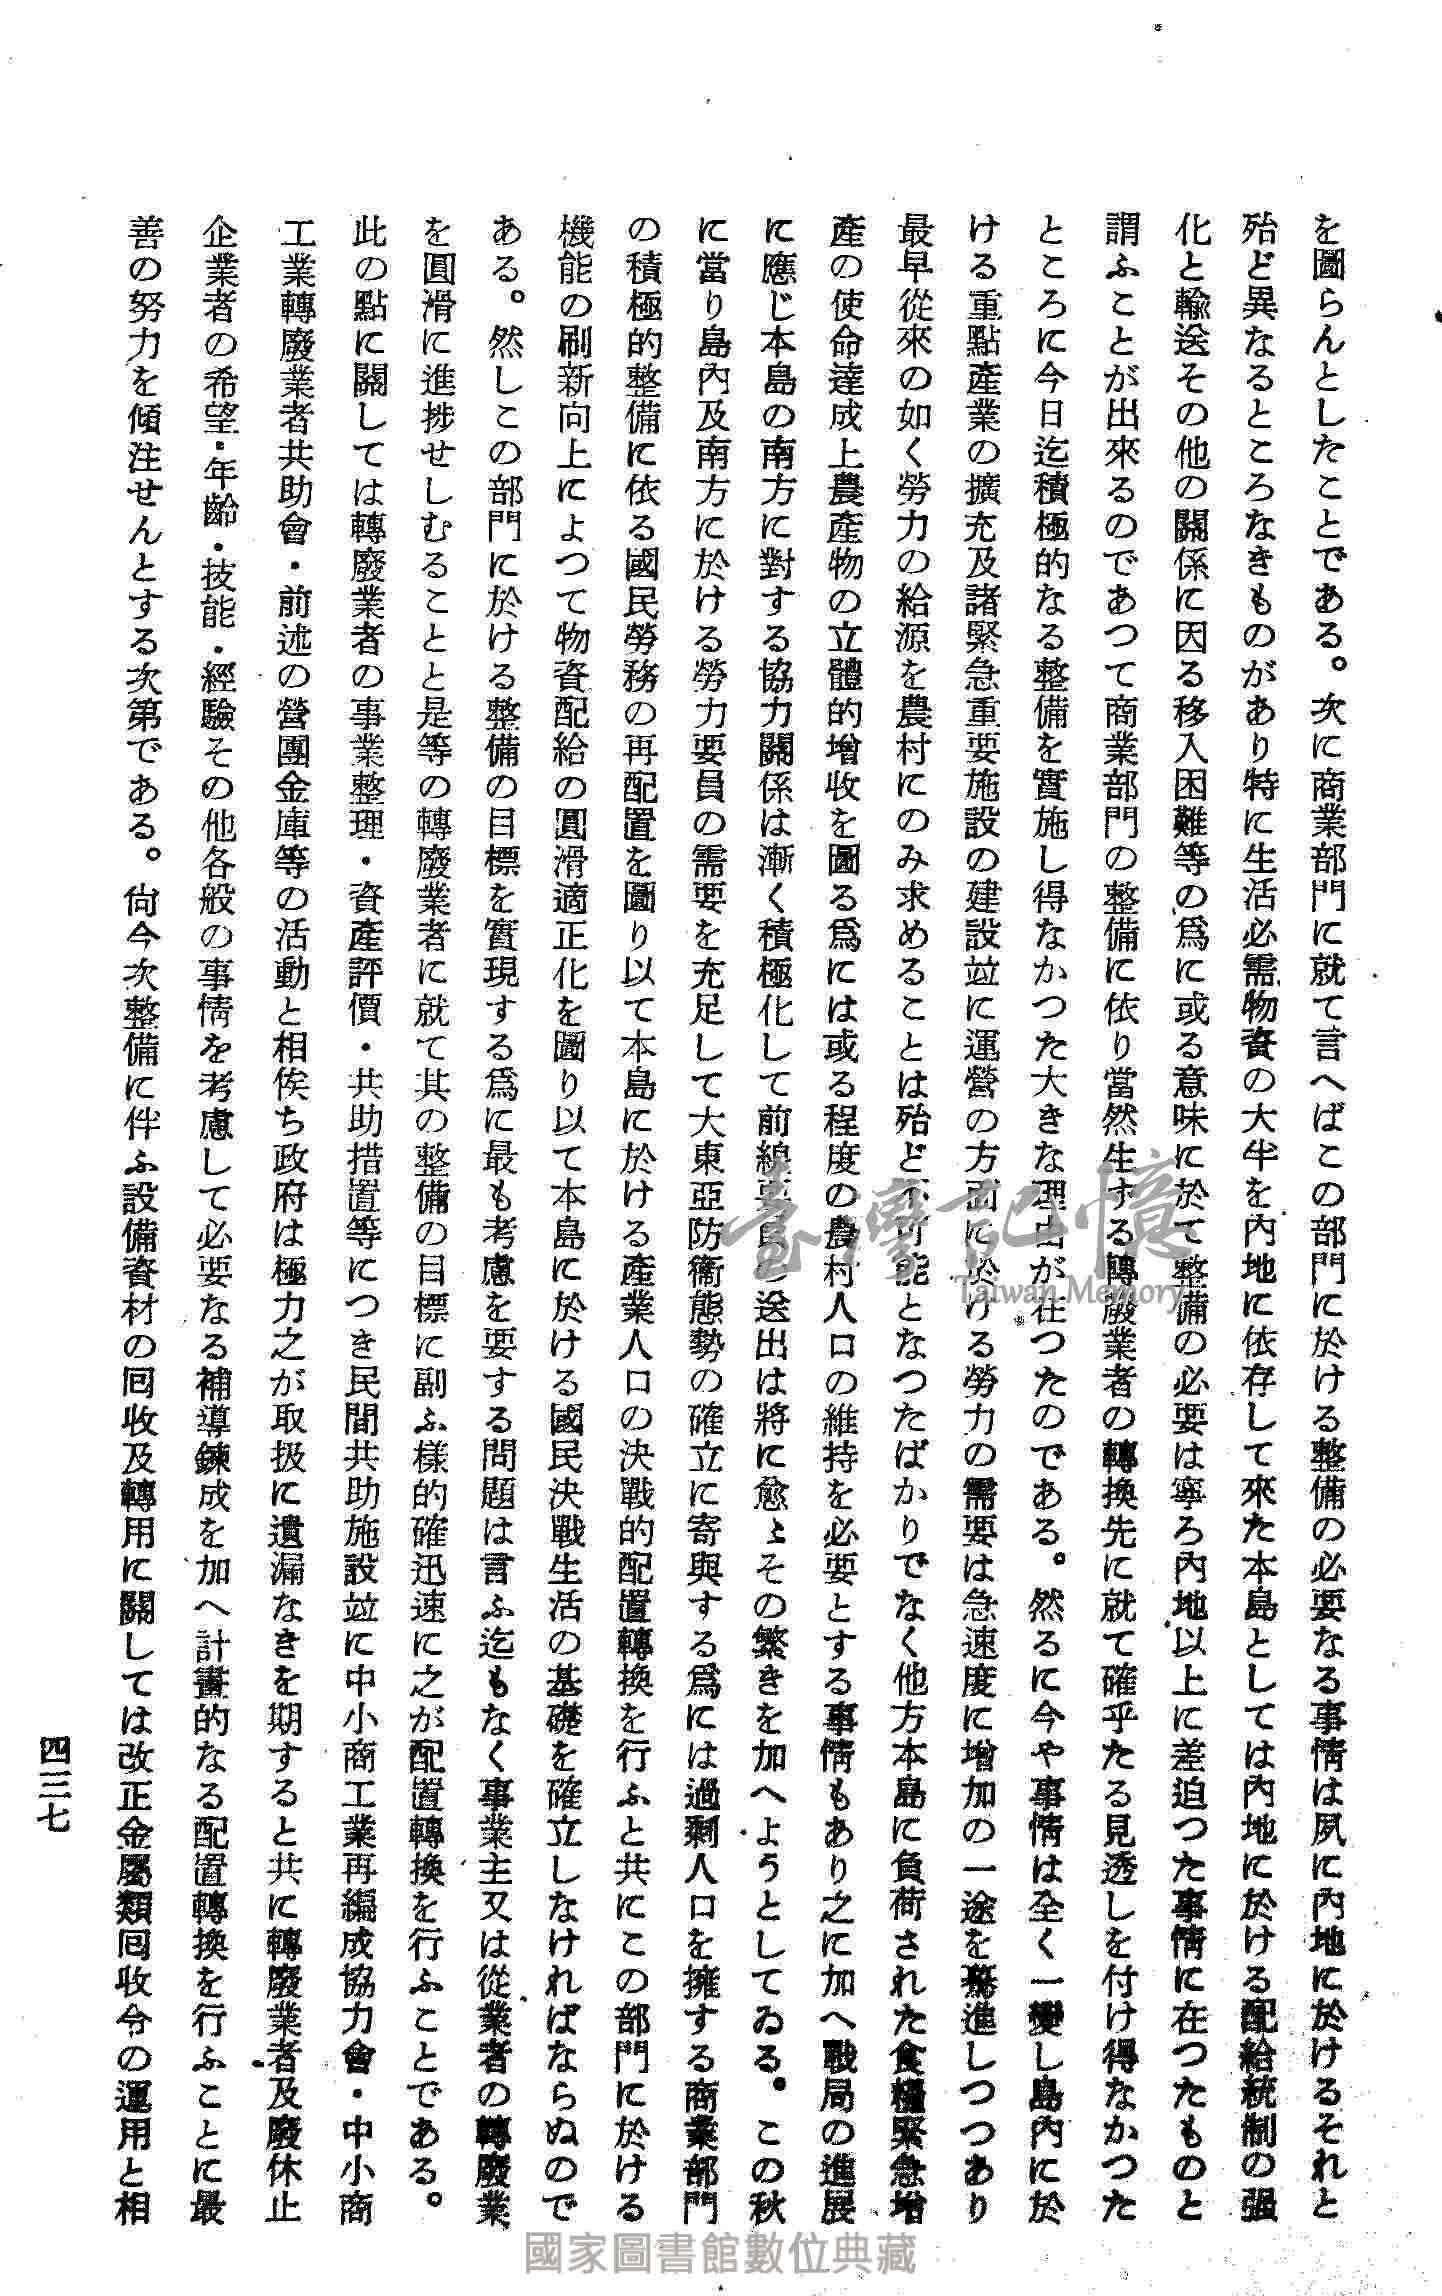 を圖らんとしたことである。次に商業部門に就て言へばこの部門に於ける整備の必要なる事情は夙に內地に於けるそれと
殆ど異なるところなきものがあり特に生活必需物資の大半を內地に依存して來た本島としては內地に於ける配給統制の强
化と輸送その他の關係に因る移入困難等の爲に或る意味に於て整備の必要は寧ろ內地以上に差迫つた事情に在つたものと
謂ふことが出來るのであつて商業部門の整備に依り當然生する轉廢業者の轉換先に就て確乎たる見透しを付け得なかつた
ところに今日迄積極的なる整備を實施し得なかつた大きな理由が在つたのである。然るに今や事情は全く一變し島內に於
ける重點產業の擴充及諸緊急重要施設の建設竝に運營の方面に於ける勞力の需要は急速度に增加の一途を驀進しつつあり
最早從來の如く勞力の給源を農村にのみ求めることは殆ど不可能となつたばかりでなく他方本島に負荷された食糧緊急增
產の使命達成上農產物の立體的增收を圖る爲には或る程度の農村人口の維持を必要とする事情もあり之に加へ戰局の進展
に應じ本島の南方に對する協力關係は漸く積極化して前線要員の送出は將に愈〻その繁きを加へようとしてゐる。この秋
に當り島內及南方に於ける勞力要員の需要を充足して大東亞防衞態勢の確立に寄與する爲には過剩人口を擁する商業部門
の積極的整備に依る國民勞務の再配置を圖り以て本島に於ける產業人口の決戰的配置轉換を行ふと共にこの部門に於ける
機能の刷新向上によつて物資配給の圓滑適正化を圖り以て本島に於ける國民決戰生活の基礎を確立しなければならぬので
ある。然しこの部門に於ける整備の目標を實現する爲に最も考慮を要する問題は言ふ迄もなく事業主又は從業者の轉廢業
を圓滑に進捗せしむることと是等の轉廢業者に就て其の整備の目標に副ふ樣的確迅速に之が配置轉換を行ふことである。
此の點に關しては轉廢業者の事業整理・資產評價・共助措置等につき民間共助施設竝に中小商工業再編成協力會・中小商
工業轉廢業者共助會・前述の營團金庫等の活動と相俟ち政府は極力之が取扱に遺漏なきを期すると共に轉廢業者及廢休止
企業者の希望・年齡・技能・經驗その他各般の事情を考慮して必要なる補導鍊成を加へ計畫的なる配置轉換を行ふことに最
善の努力を傾注せんとする次第である。尙今次整備に伴ふ設備資材の回收及轉用に關しては改正金屬類回收令の運用と相
四三七
臺灣記憶
Taiwan Memory
國家圖書館數位典藏